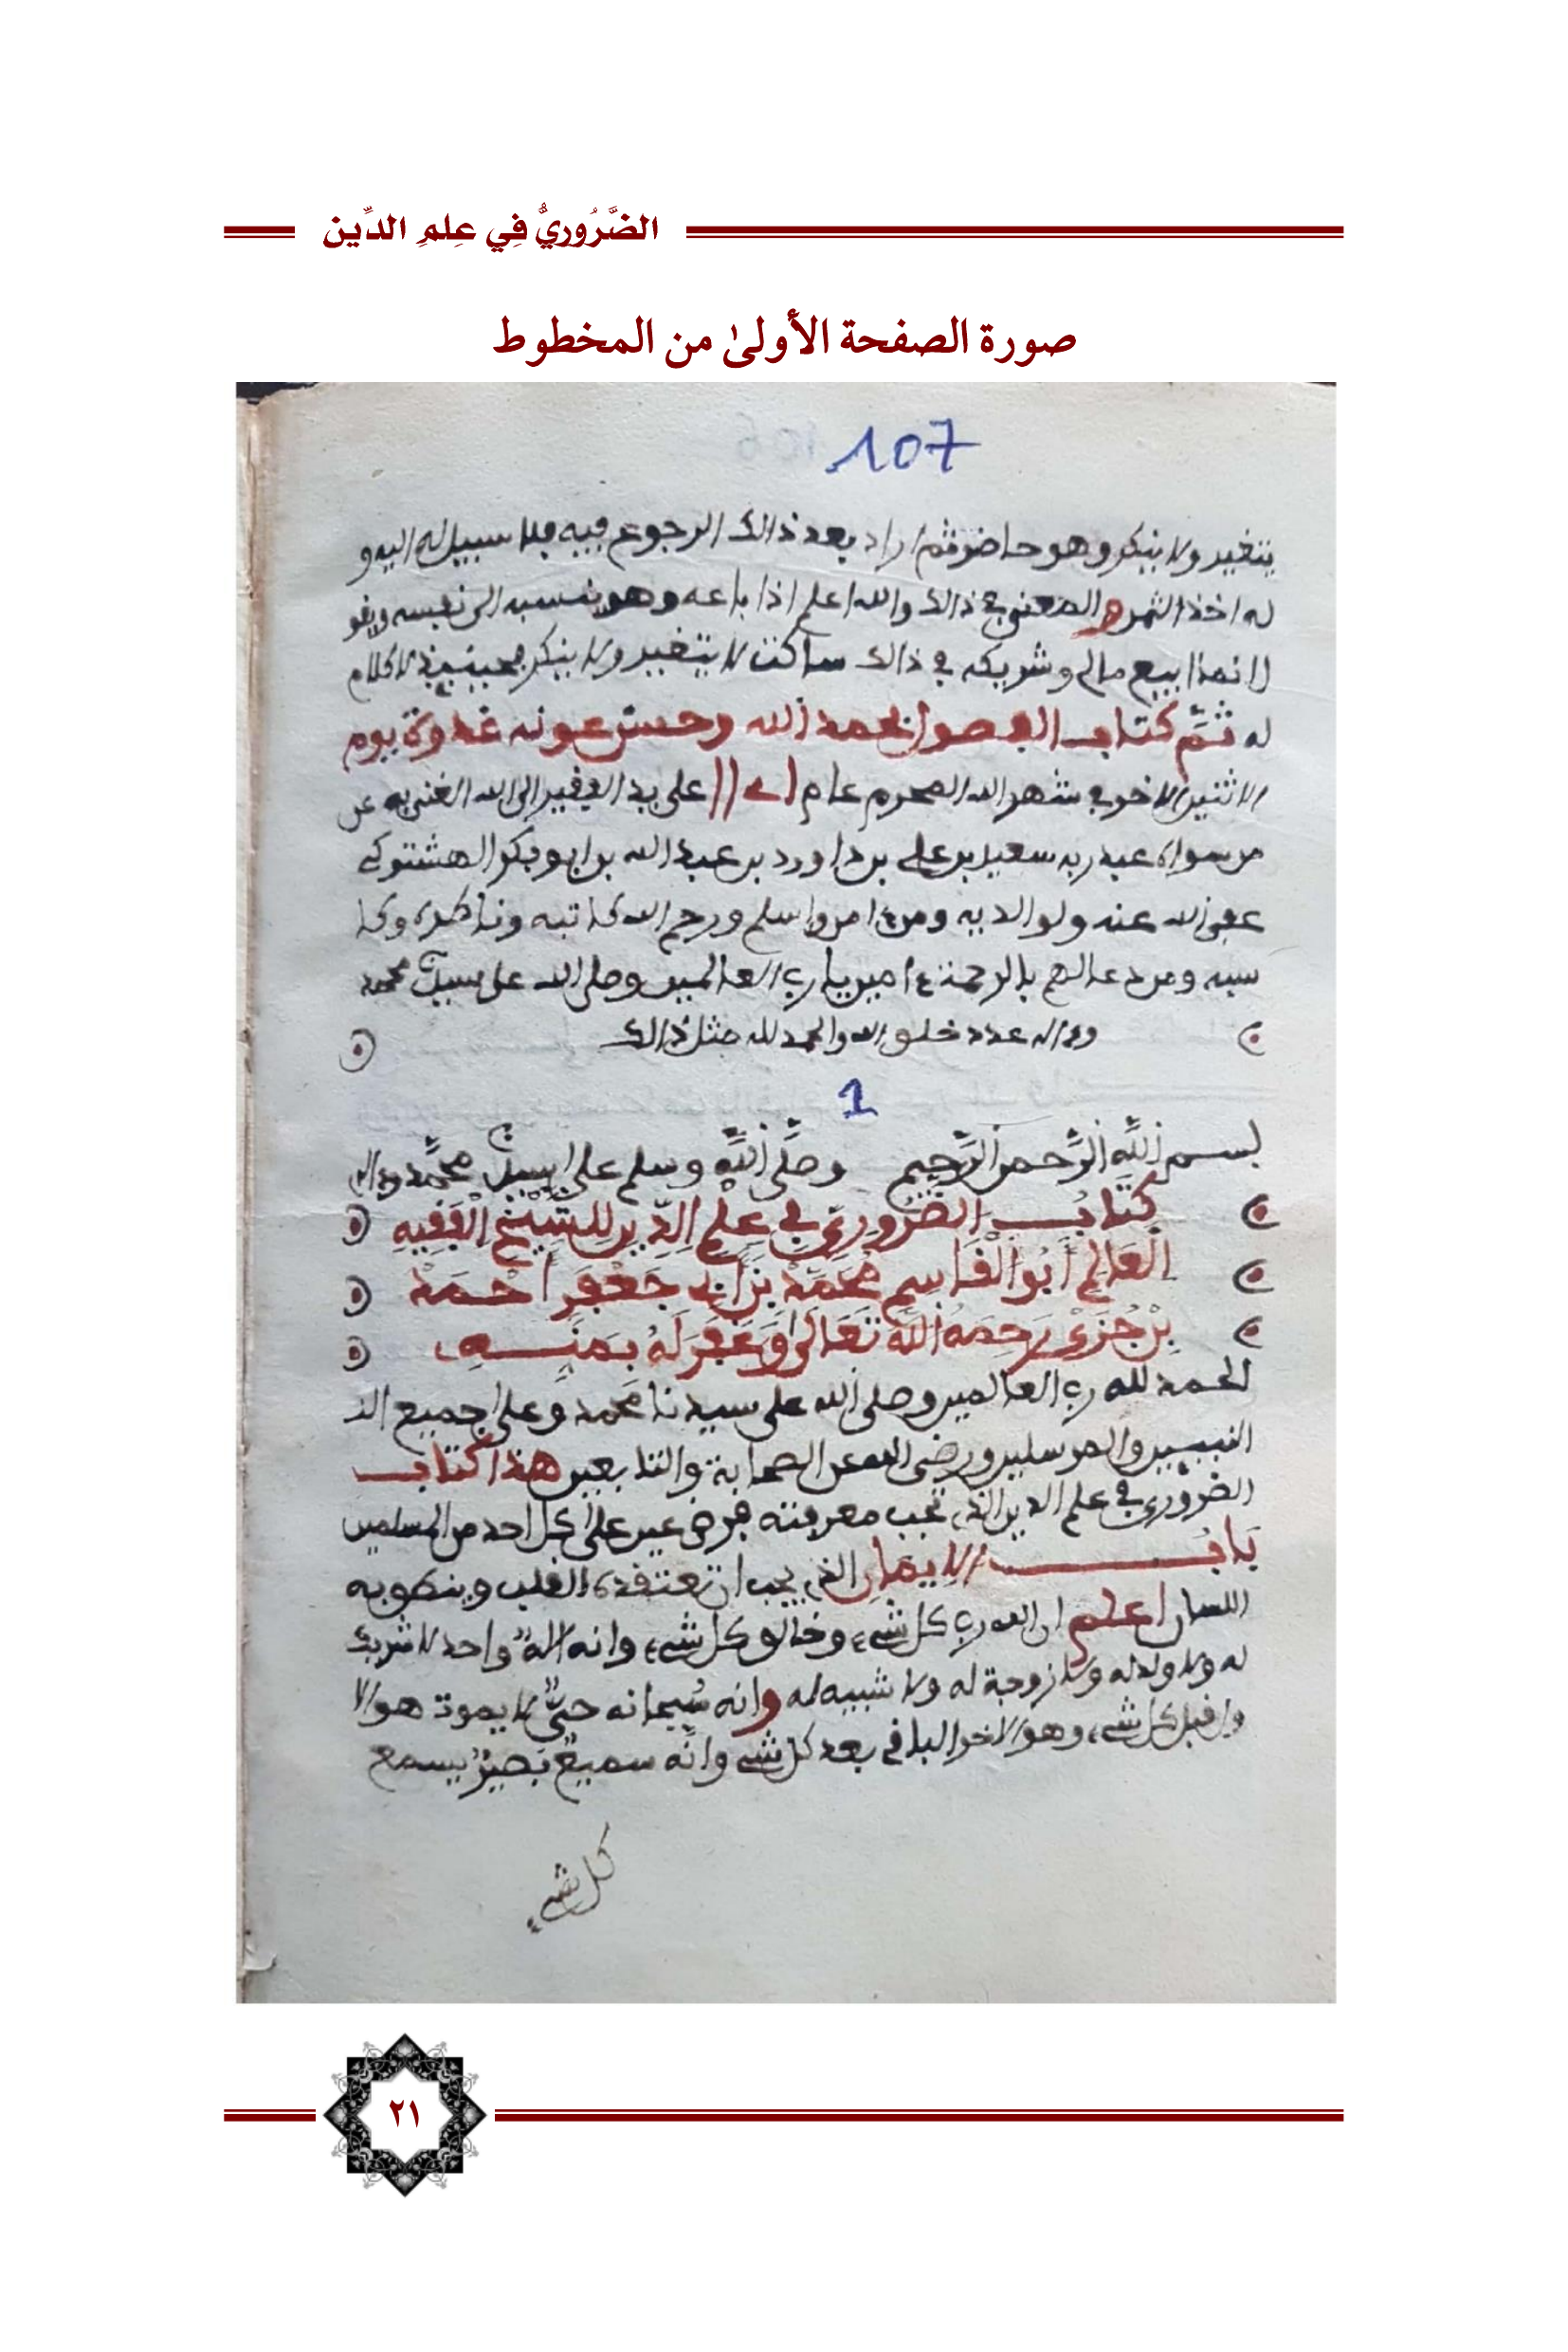 الضَّرُوريُّ فِي عِلمِ الدِّين
صورة الصفحة الأولىٰ من المخطوط
107
يتغير ولا ينكر وهو حاضر ثم اراد بعد ذالك الرجوع فيه فلا سبيل له اليه و
له اخذ الثمن والمعنى في ذالك والله اعلم اذا باعه وهو ينسبه الى نفسه
بيع مالي وشريكه في ذالك ساكت لا يتغير ولا ينكر فحينيذ لا كلام
له تم كتاب الفصول بحمد الله وحسن عونه غدوة يوم
الاثنين الاخر في شهر الله المحرم عام على يد الفقير الى الله الغني به عن
من سواه عبد ربه سعيد بن علي بن داوود بن عبد الله بن ابو بكر الهشتوكي
عفى الله عنه ولوالديه ومن وا سلم ورحم الله كاتبه وناظره وكا
سبه ومن دعا لهم بالرحمة ءامين يا رب العالمين وصلى الله على سيدنا محمد
وءاله عدد خلق الله والحمد لله مثل ذالك
1
بسم الله الرحمن الرحيم وصلى الله وسلم على سيدنا محمد وءاله
كتاب الضروري في علم الدين للشيخ الفقيه
العالم أبو القاسم محمد بن أبي جعفر أحمد
بن جزي رحمه الله تعالى وغفر له بمنه
الحمد لله رب العالمين وصلى الله على سيدنا محمد وعلى جميع
النبيين والمرسلين ورضى الله عن الصحابة والتابعين هذا كتاب
الضروري في علم الدين الذي تجب معرفته فرض عين على كل احد من المسلمين
باب الايمان الذي يجب ان تعتقده القلب وينطق به
اللسان اعلم ان الله رب كل شيء وخالق كل شيء وانه اله واحد لا شريك
له ولا ولد له ولا زوجة له ولا شبيه له وانه سبحانه حي لا يموت هو الا
ول قبل كل شيء وهو الاخر الباقي بعد كل شيء وانه سميع بصير يسمع
كل شيء
٢١